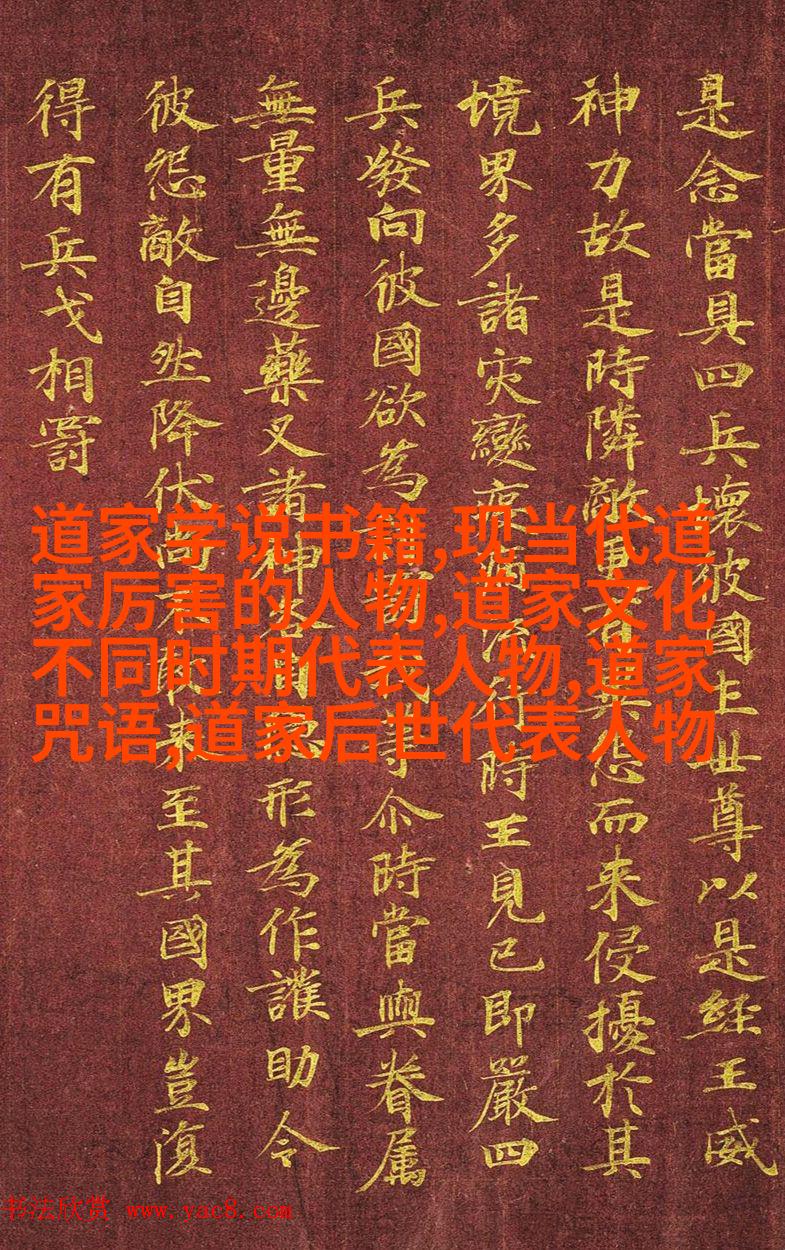 是念當具四兵壞彼國圡世尊以是經王威
神力故是時隣敵更有異怨而来侵擾於其
境界多諸灾變疫病流行時王見已即嚴四
兵發向彼國欲為我等尒時當與眷属
無量無邊藥叉諸神各自形為作護助令
彼怨敵自然降伏尚不敢来至其國界豈復
得有兵戈相罸
道家学说书籍,现当代道
家厉害的人物,道家文化
不同时期代表人物,道家
咒语,道家后世代表人物
书法欣赏 www.yac8.com